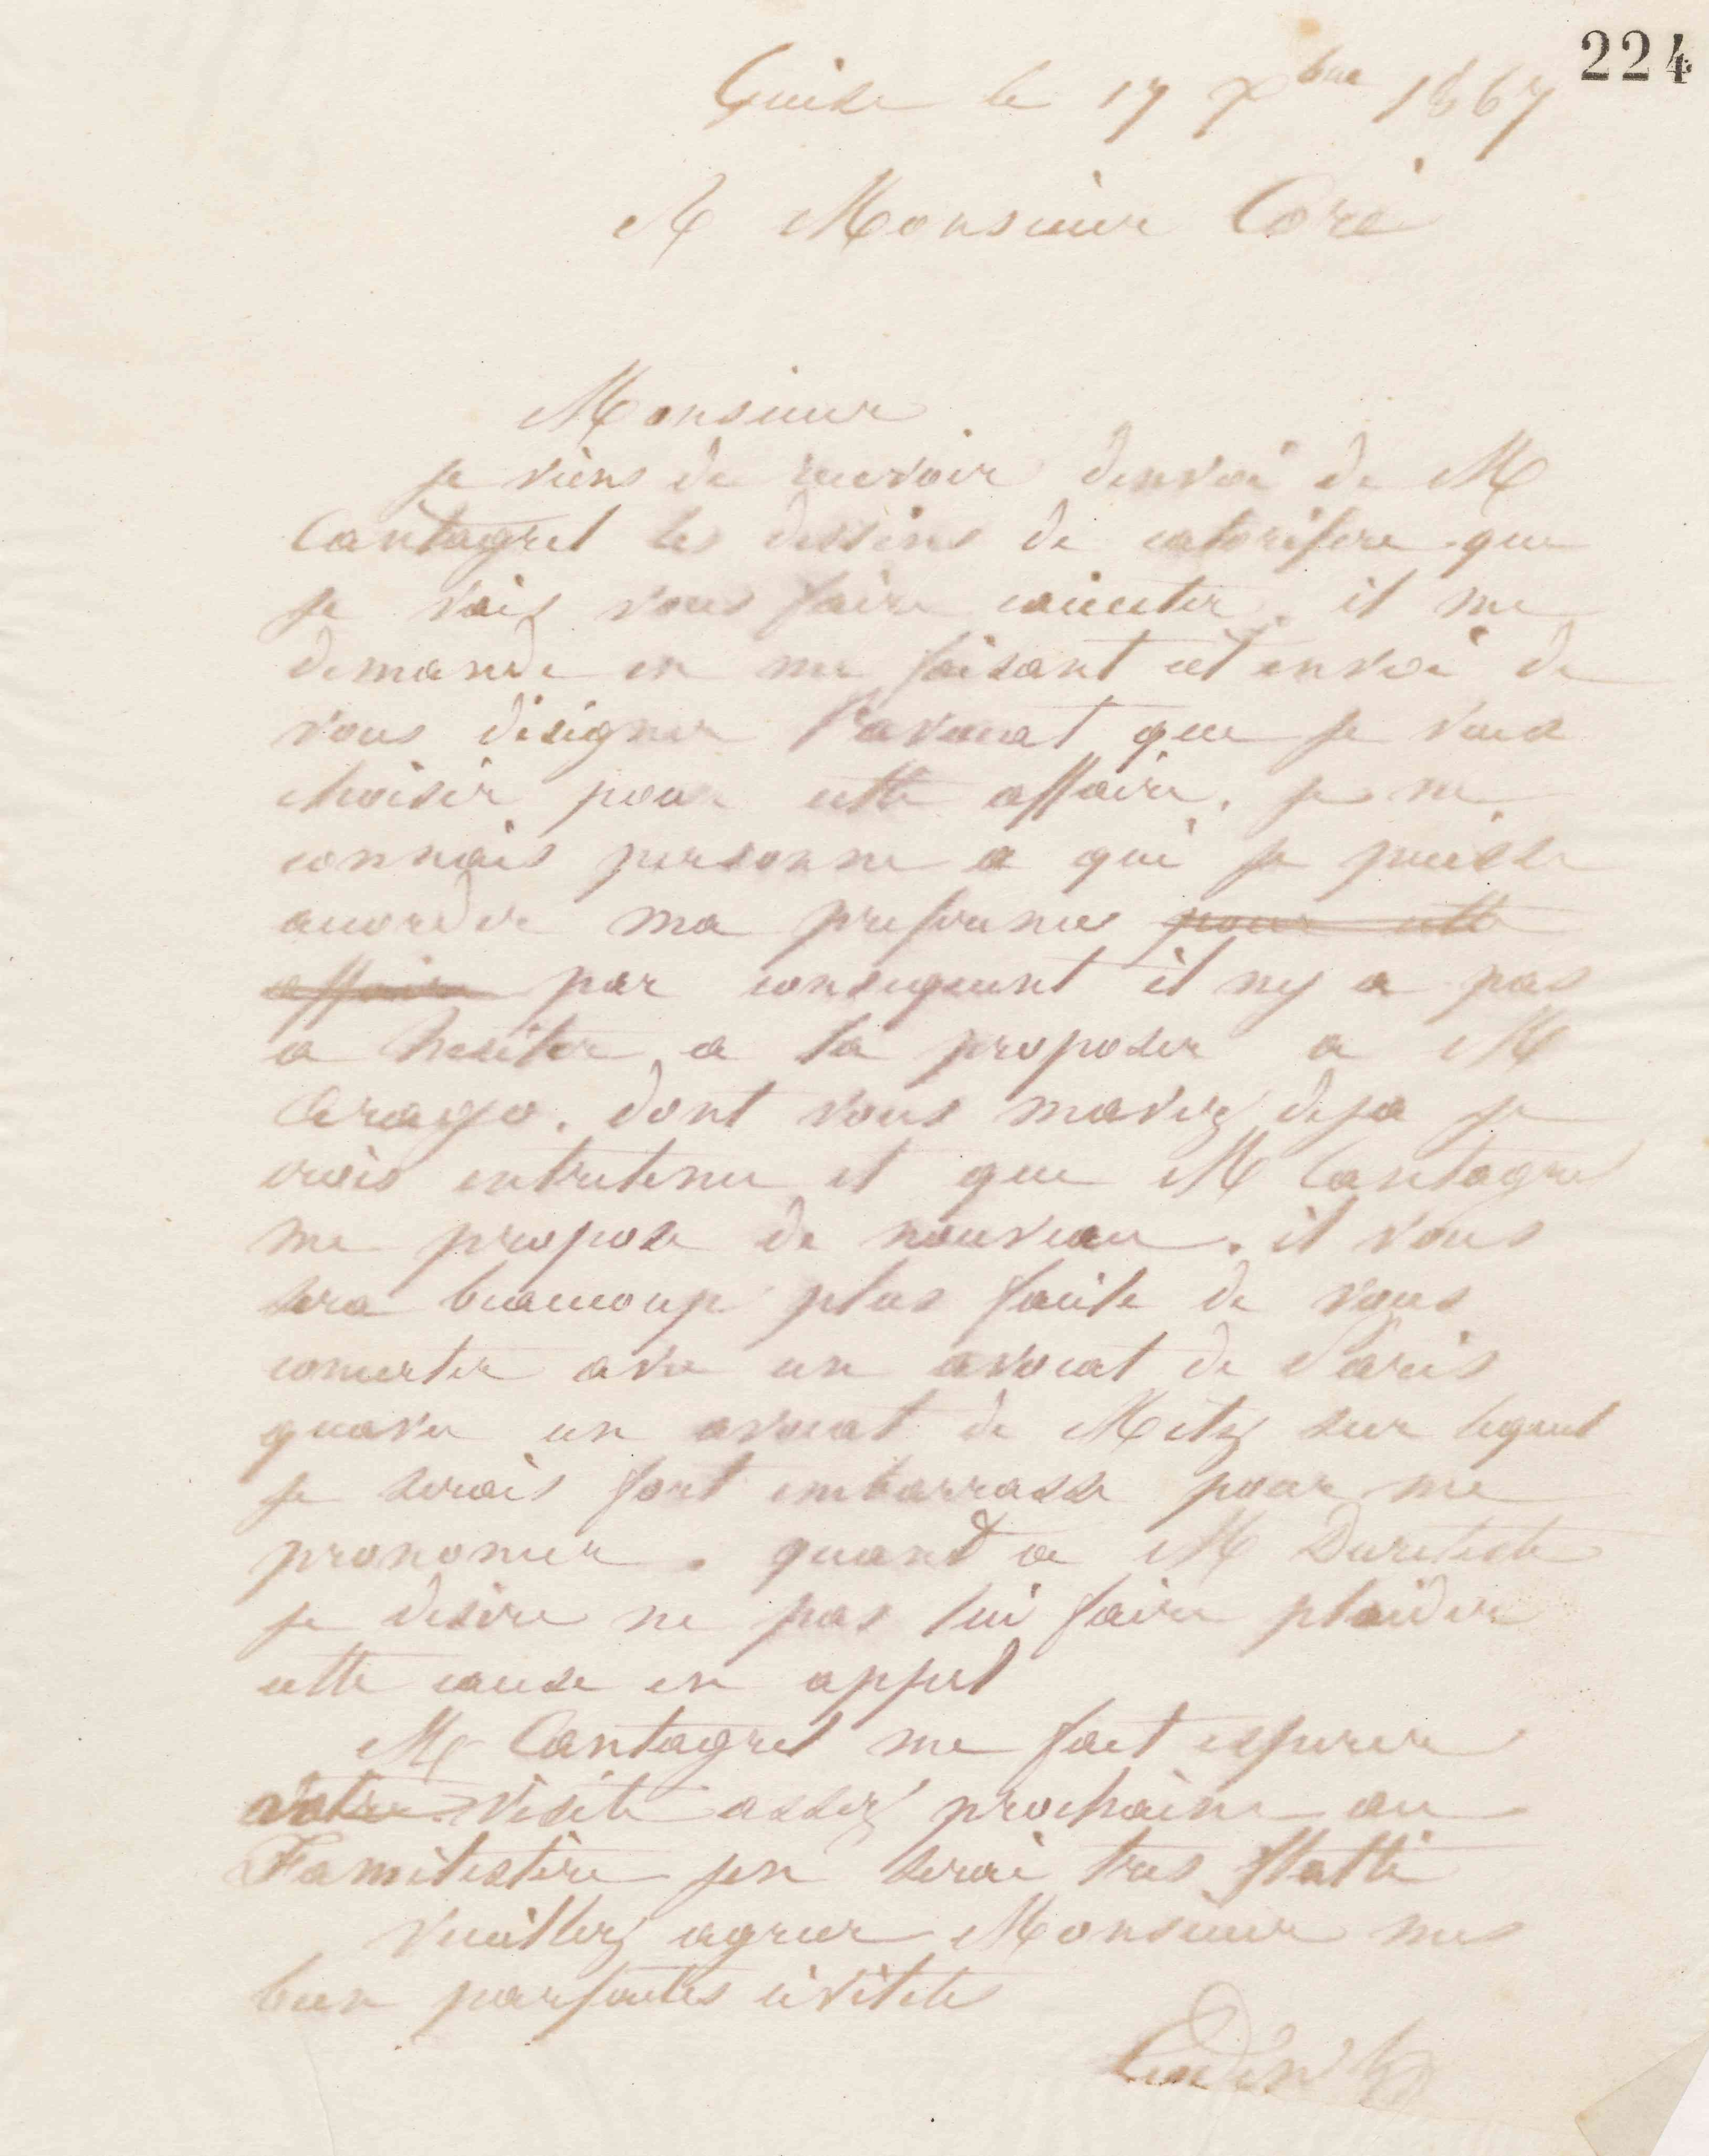 224
Guise le 17 Xbre 1867
A Monsieur Coré
Monsieur
je viens de recevoir denvoi de M
Cantagrel les dessins de calorifere que
je vais vous faire executer. il me
demande en me faisant cet envoi de
vous désigner l'avocat que je veux
choisir pour cette affaire. je ne
connais personne a qui je puisse
accorder ma preference pour cette
affaire par consequent il ny a pas
a hesiter a la proposer a M
Arago. dont vous mavez deja je
crois entretenu et que M Cantagrel
me propose de nouveau. il vous
sera beaucoup plus facile de vous
concerter avec un avocat de Paris
quavec un avocat de Metz sur lequel
je serais fort embarrassé pour me
prononcer. quant a M
je desire ne pas lui faire plaider
cette cause en appel
M Cantagrel me fait esperer
votre visite assez prochaine au
Familistère jen serai tres flatté
Veuillez agreer Monsieur mes
bien parfaites civilités
Godin